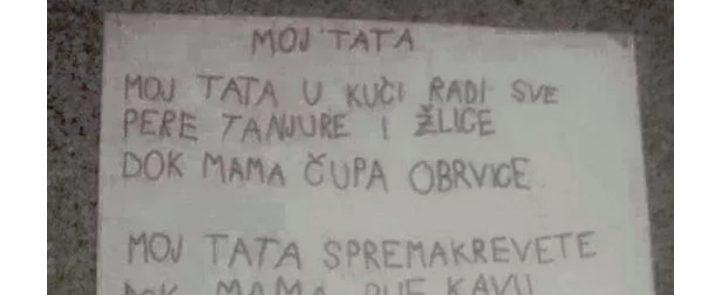 MOJ TATA
MOJ TATA U KUČI RADI SVE
PERE TANJURE I ŽLICE
DOK MAMA ČUPA OBRVICE
MOJ TATA SPREMAKREVETE
DOK MAMA PIJE KAVU